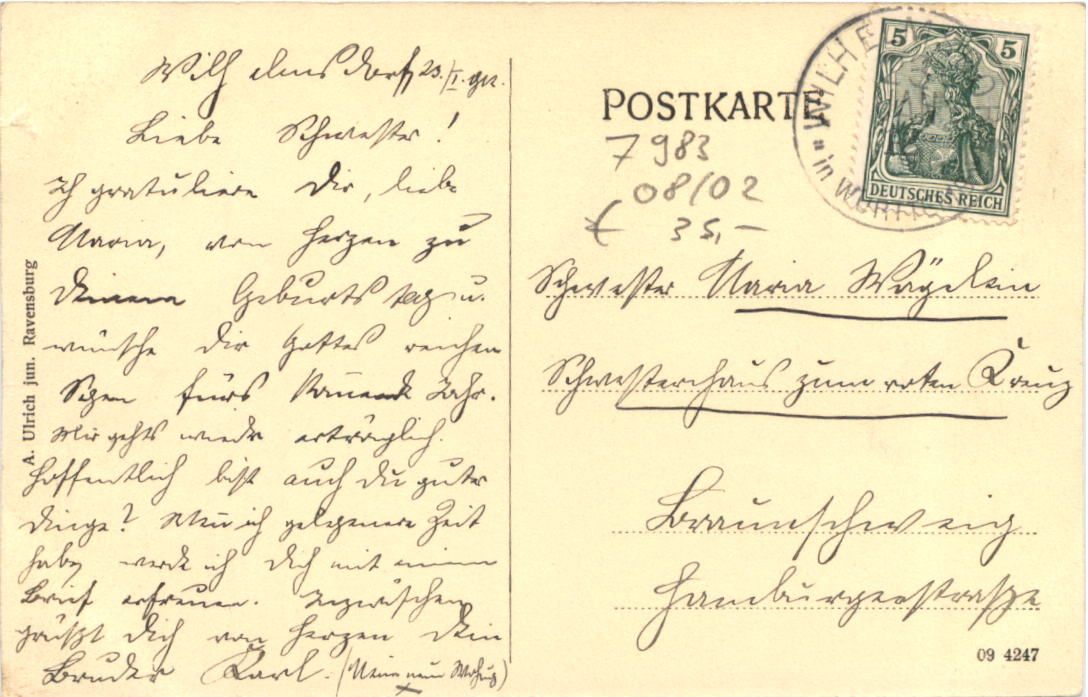 Wilhelmsdorf, 23./I. 12.
Liebe Schwester!
Ich gratuliere Dir, liebe
Maria, von Herzen zu
Deinem Geburtstag u.
wünsche Dir Gottes reichen
Segen fürs kommende Jahr.
Mir gehts wieder erträglich.
Hoffentlich bist auch Du guter
Dinge? Wenn ich gelegenere Zeit
habe, werde ich Dich mit einem
Brief erfreuen. Inzwischen
grüßt Dich von Herzen Dein
Bruder Karl. (Meine neue Wohng)
A. Ulrich jun. Ravensburg
POSTKARTE
WILHELMSDORF
in WÜRTT
5 5
DEUTSCHES REICH
7983
08/02
35,–
Schwester Maria Wägelein
Schwesternhaus zum roten Kreuz
Braunschweig
Hamburgerstraße
09 4247